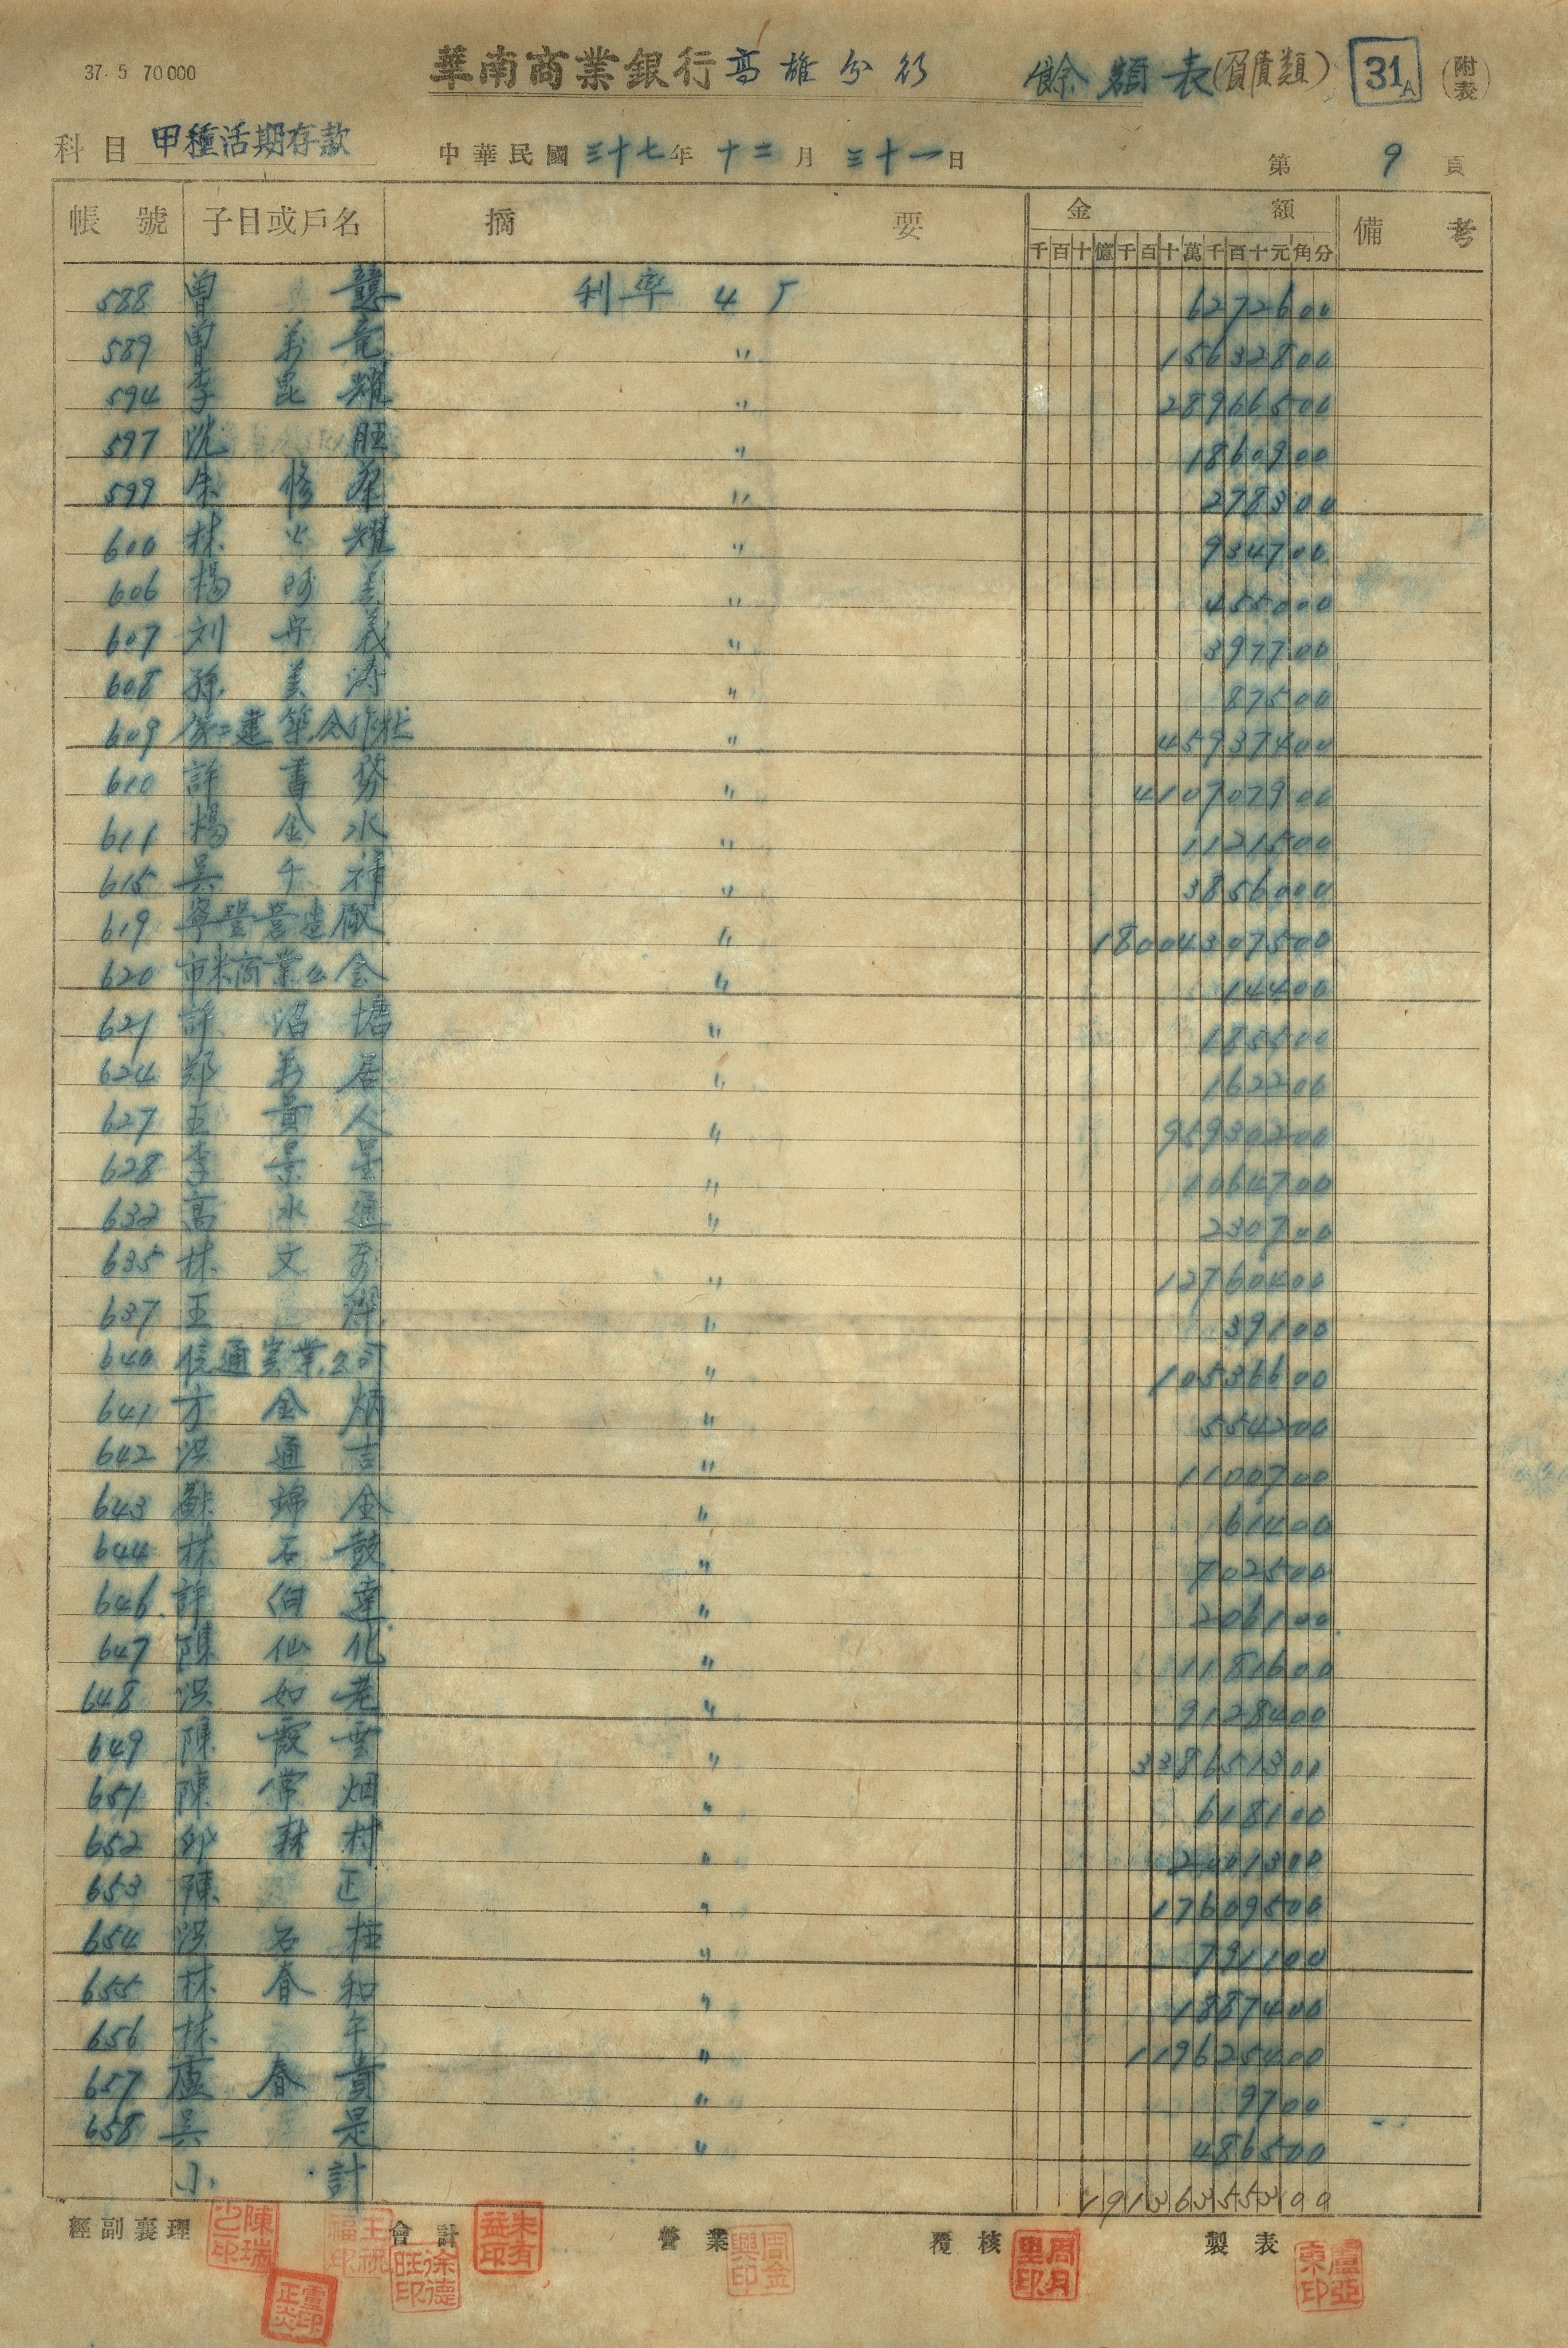 37. 5 70000
華南商業銀行高雄分行 餘額表(負債類) 31A (附表)
科目 甲種活期存款 中華民國三十七年十二月三十一日 第9頁
帳號 子目或戶名 摘要 金額 備考
千百十億千百十萬千百十元角分
588 曾 利率 45 6272600
589 曾萬 〃 15632800
594 李昆耀 〃 28966500
597 沈旺 〃 1860900
599 朱修 〃 278300
600 林火耀 〃 934700
606 楊 〃 455000
607 刘丹義 〃 397700
608 孫美涛 〃 87500
609 第二建築合作社 〃 45937400
610 許書 〃 410707900
611 楊金水 〃 1121500
615 吳千祥 〃 3856000
619 寧豐營造廠 〃 18004307500
620 市米商業公会 〃 14400
621 許沼塘 〃 185500
624 郑萬居 〃 162200
627 王貴人 〃 95930200
628 李景星 〃 1064700
632 高水通 〃 230700
635 林文 〃 12760400
637 王 〃 39100
640 信通実業公司 〃 10536600
641 方金炳 〃 554200
642 洪通吉 〃 1100700
643 蘇錦全 〃 161400
644 林石鼓 〃 702500
646 許伯達 〃 206100
647 陳仙化 〃 1181600
648 洪如 〃 9128400
649 陳霞雲 〃 338651300
651 陳常烟 〃 618100
652 邱耕村 〃 2401300
653 陳正 〃 17609500
654 洪石柱 〃 791100
655 林春和 〃 1887400
656 林午 〃 119625400
657 盧春貴 〃 9700
658 吳是 〃 486500
小計 19136355300
經副襄理 會計 營業 覆核 製表
陳瑞 印
王祝福印
朱有益印
徐德旺印
盧正炎印
周金興印
周月里印
盧亞東印